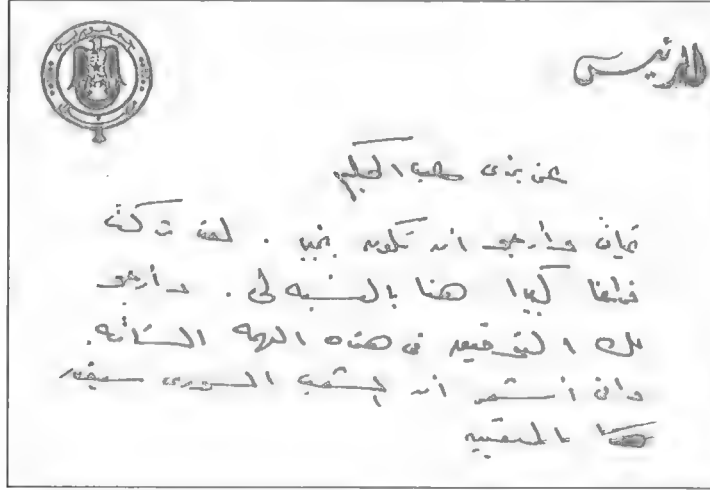 الرئيس
عزيزى عبد الحكيم
تحياتى وأرجو ان تكون بخير. لقد تركت
فراغا كبيرا هنا بالنسبة لى. وأرجو
لك التوفيق فى هذه المهمة الشاقة.
وانى أشعر ان الشعب السورى سيقدر